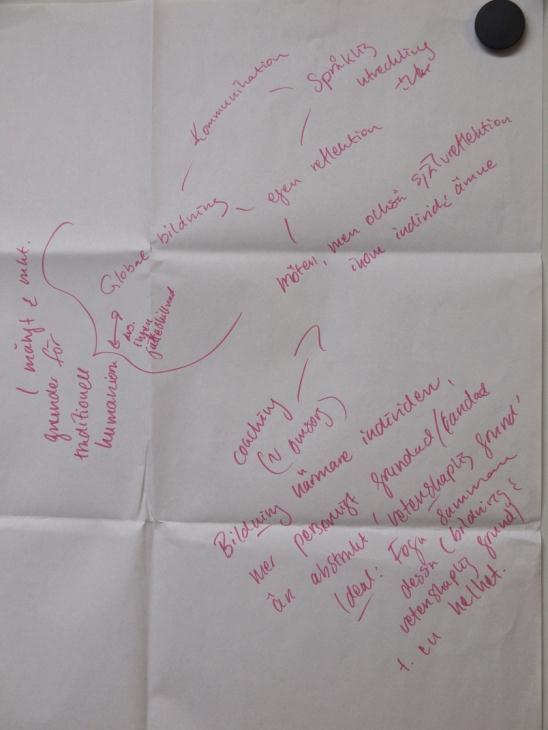 Kommunikation
Språklig
utveckling
egen reflektion
Global bildning
möten, men också självreflektion
inom individ & ämne
I mångt & mkt.
grunden för
traditionell
humanism
ingen
coaching
(~ omsorg)
Bildning närmare individen,
mer personligt grundad/
än abstrakt, vetenskaplig grund'
Ideal: Foga samman
dessa (bildning &
vetenskaplig grund)
t. en helhet.